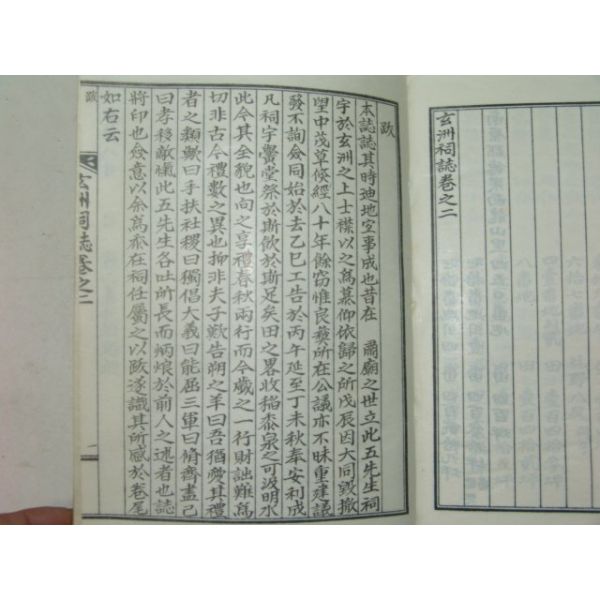 玄洲祠誌卷之二
跋
本誌誌其時迪地宜事成也昔在 肅廟之世立此五先生祠
宇於玄洲之上士襟以之爲慕仰依歸之所戊辰因大同毁撤
望中茂草倏經八十年餘窃惟良彛所在公議亦不昧重建議
發不詢僉同始於去乙巳工告於丙午延至丁未秋奉安利成
凡祠宇黌堂祭於斯飮於斯足矣田之畧收稻黍泉之可汲明水
此今其全貌也向之享禮春秋兩行而今歲之一行財詘難爲
切非古今禮數之異也抑非夫子歎告朔之羊曰吾猶愛其禮
者之類歟曰手扶社稷曰獨倡大義曰能屈三軍曰脩齊盡己
曰孝移敵愾此五先生各吐所長而炳烺於前人之述者也誌
將印也僉意以余爲忝在祠任屬之以跋遂識其所感於卷尾
如右云
跋
玄洲祠誌卷之二